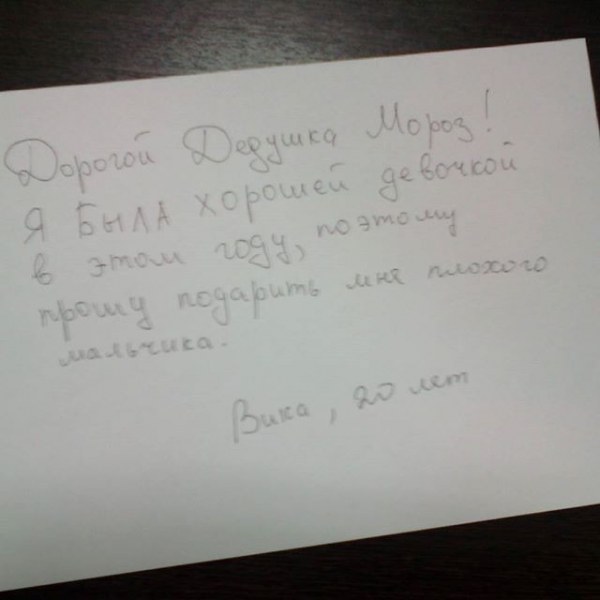 Дорогой Дедушка Мороз!
Я БЫЛА хорошей девочкой
в этом году, поэтому
прошу подарить мне плохого
мальчика.
Вика, 20 лет